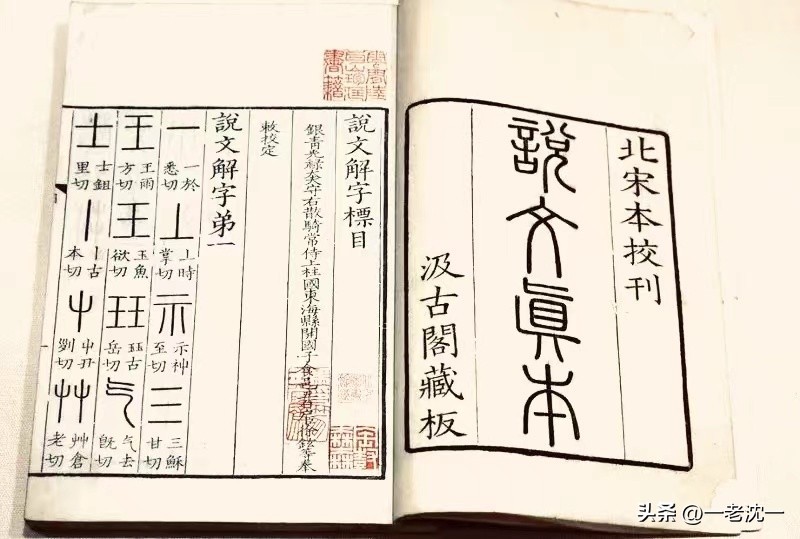 北宋本挍刊
說文眞本
汲古閣藏板
說文解字標目
銀青光祿大夫守右散騎常侍上柱國東海縣開國子食邑五百戶臣徐鉉等奉
敕挍定
說文解字弟一
一 一於悉切 丄 上時掌切 示 示神至切 三 三穌甘切
王 王雨方切 王 玉魚欲切 玨 玨古岳切 气 气去旣切
士 士鉏里切 丨 丨古本切 屮 屮丑列切 艸 艸倉老切
头条 @一老沈一